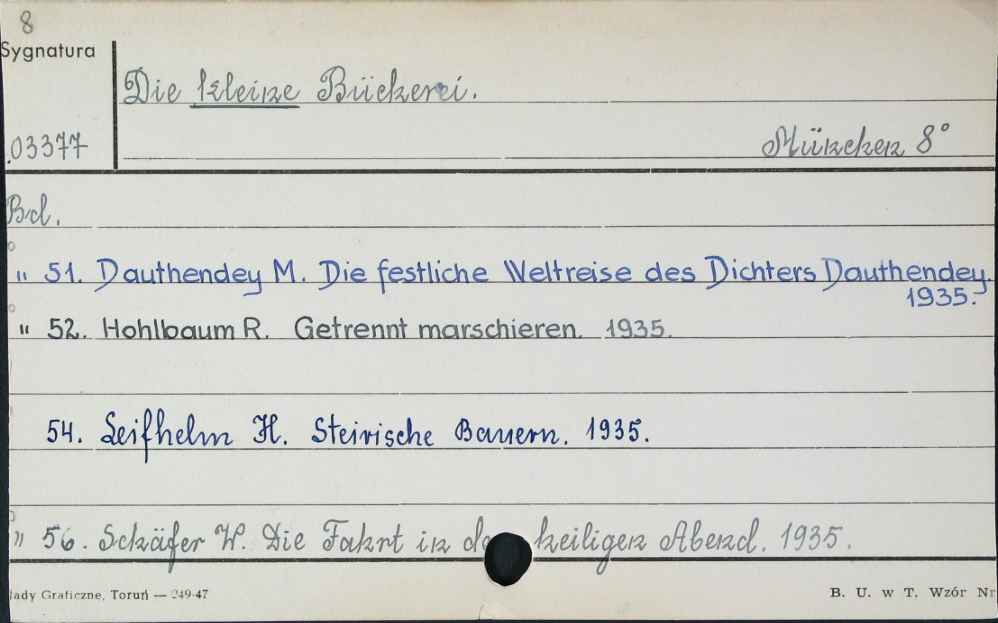 8
Sygnatura
03377
Die kleine Bücherei.
München 8°
Bd.
" 51. Dauthendey M. Die festliche Weltreise des Dichters Dauthendey.
1935.
" 52. Hohlbaum R. Getrennt marschieren. 1935.
54. Leifhelm H. Steirische Bauern. 1935.
" 56. Schäfer W. Die Fahrt in heiligen Abend. 1935.
Graficzne, Toruń — 249-47
B. U. w T. Wzór Nr